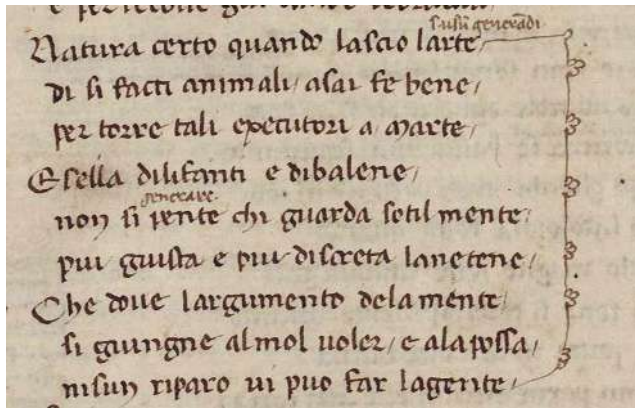 s. usū generādi
Natura certo quando lascio larte
di si facti animali / asai fe bene /
per torre tali executori a Marte /
Esella dilifanti e dibalene /
generare
non si pente chi guarda sotilmente /
piu giusta e piu discreta lanetene /
Che doue largumento dela mente
si giungne almol uoler / e ala possa /
nisun riparo ui puo far lagente /